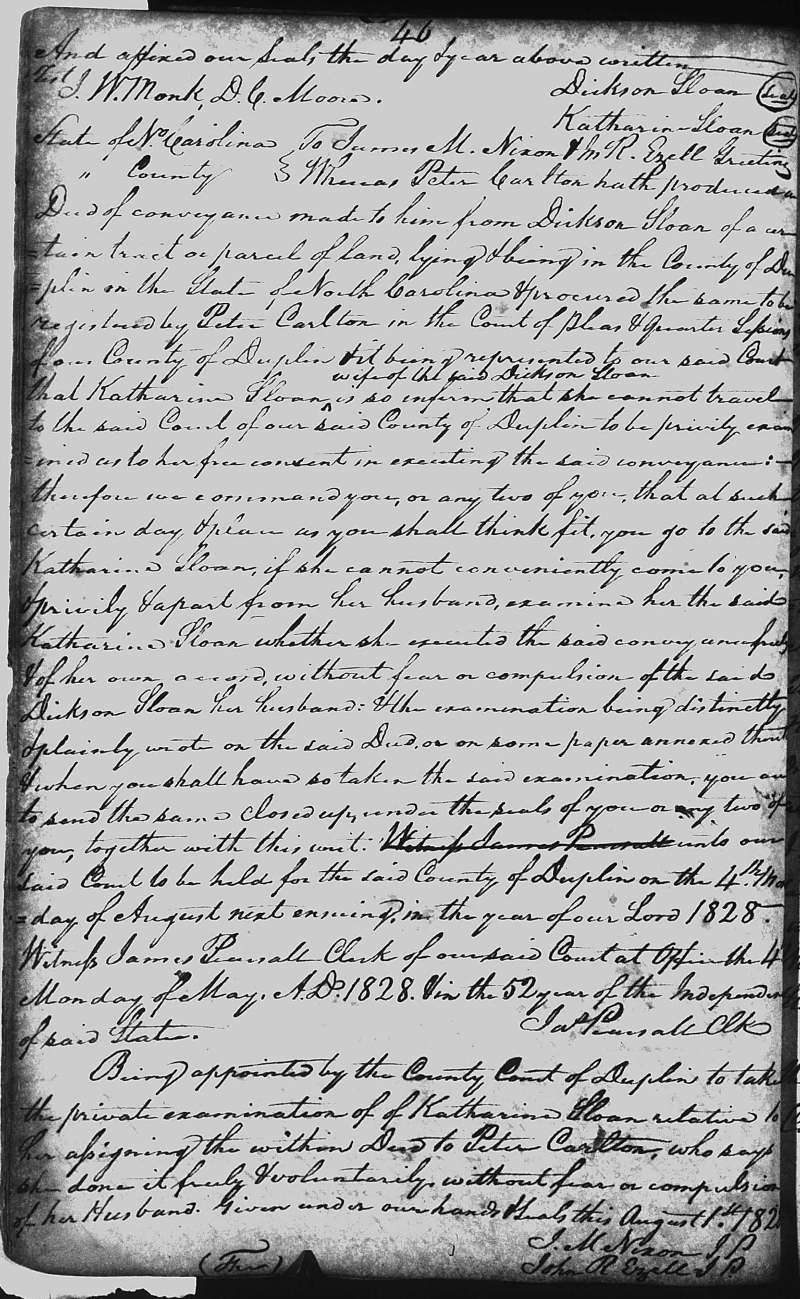 46
And affixed our Seals the day & year above written
Test J. W. Monk, D. C. Moore. Dickson Sloan (Seal)
Katharin Sloan (Seal)
State of No Carolina } To James M. Nixon & Jn R. Ezell Greeting
" County } Whereas Peter Carlton hath produced a
Deed of conveyance made to him from Dickson Sloan of a cer-
=tain tract or parcel of land, lying & being in the County of Du
=plin in the State of North Carolina & procured the same to be
registered by Peter Carlton in the Court of pleas & quarter Sessions
of our County of Duplin & it being represented to our said Court
wife of the said Dickson Sloan
that Katharine Sloan, ^ is so infirm that she cannot travel
to the said Court of our said County of Duplin to be privily exam
=ined as to her free consent in executing the said conveyance: -
therefore we command you, or any two of you, that at such
certain day & place as you shall think fit, you go to the said
Katharine Sloan, if she cannot conveniently come to you,
& privily & apart from her husband, examine her the said
Katharine Sloan whether she executed the said conveyance freely
& of her own accord, without fear or compulsion of the said
Dickson Sloan her husband: & the examination being distinctly
& plainly wrote on the said Deed, or on some paper annexed thereto
& when you shall have so taken the said examination, you are
to send the same closed up, under the seals of you or any two of
you, together with this writ. Witness James Pearsall unto our
said Court to be held for the said County of Duplin on the 4th Mon
=day of August next ensuing, in the year of our Lord 1828.
Witness James Pearsall Clerk of our said Court at Office the 4
Monday of May, A.D. 1828. & in the 52 year of the Independen
of said State. Jas Pearsall Clk
Being appointed by the County Court of Duplin to take
the private examination of of Katharine Sloan relative to
her assigning the within Deed to Peter Carlton, who says
she done it freely & voluntarily, without fear or compulsion
of her Husband. Given under our hands & Seals this August 1st 182
J. M Nixon J. P
John R Ezell J. P.